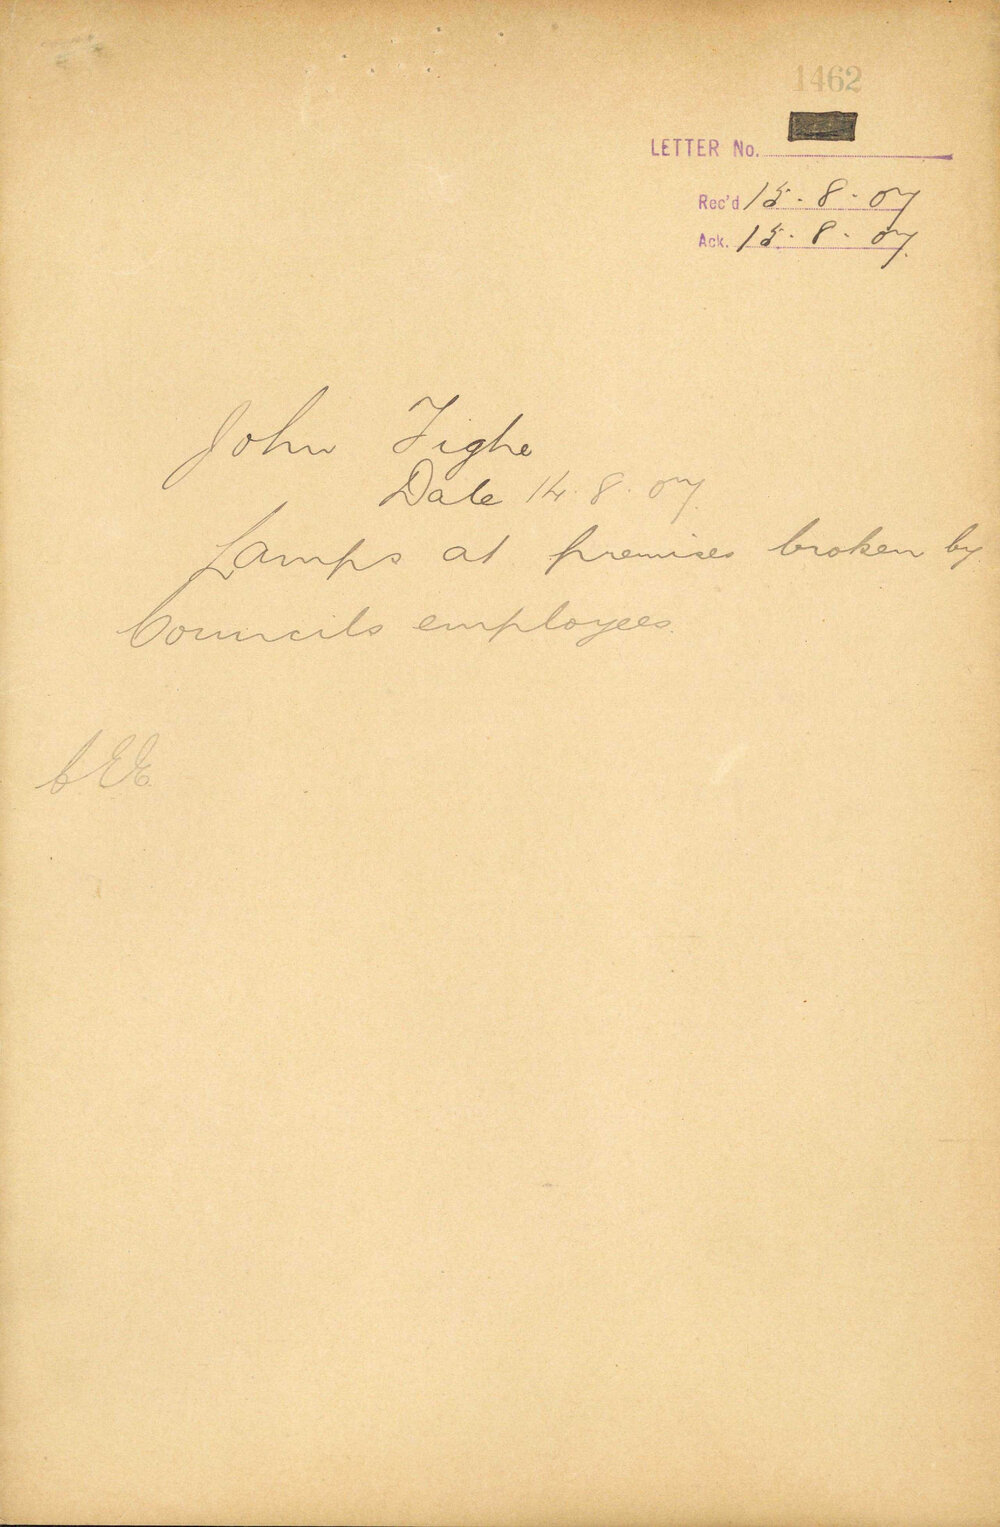 1462
LETTER No.
Rec'd 15.8.07
Ack. 15.8.07.
John Tighe
Date 14.8.07
Lamps at premises broken by
Councils employees.
CEE